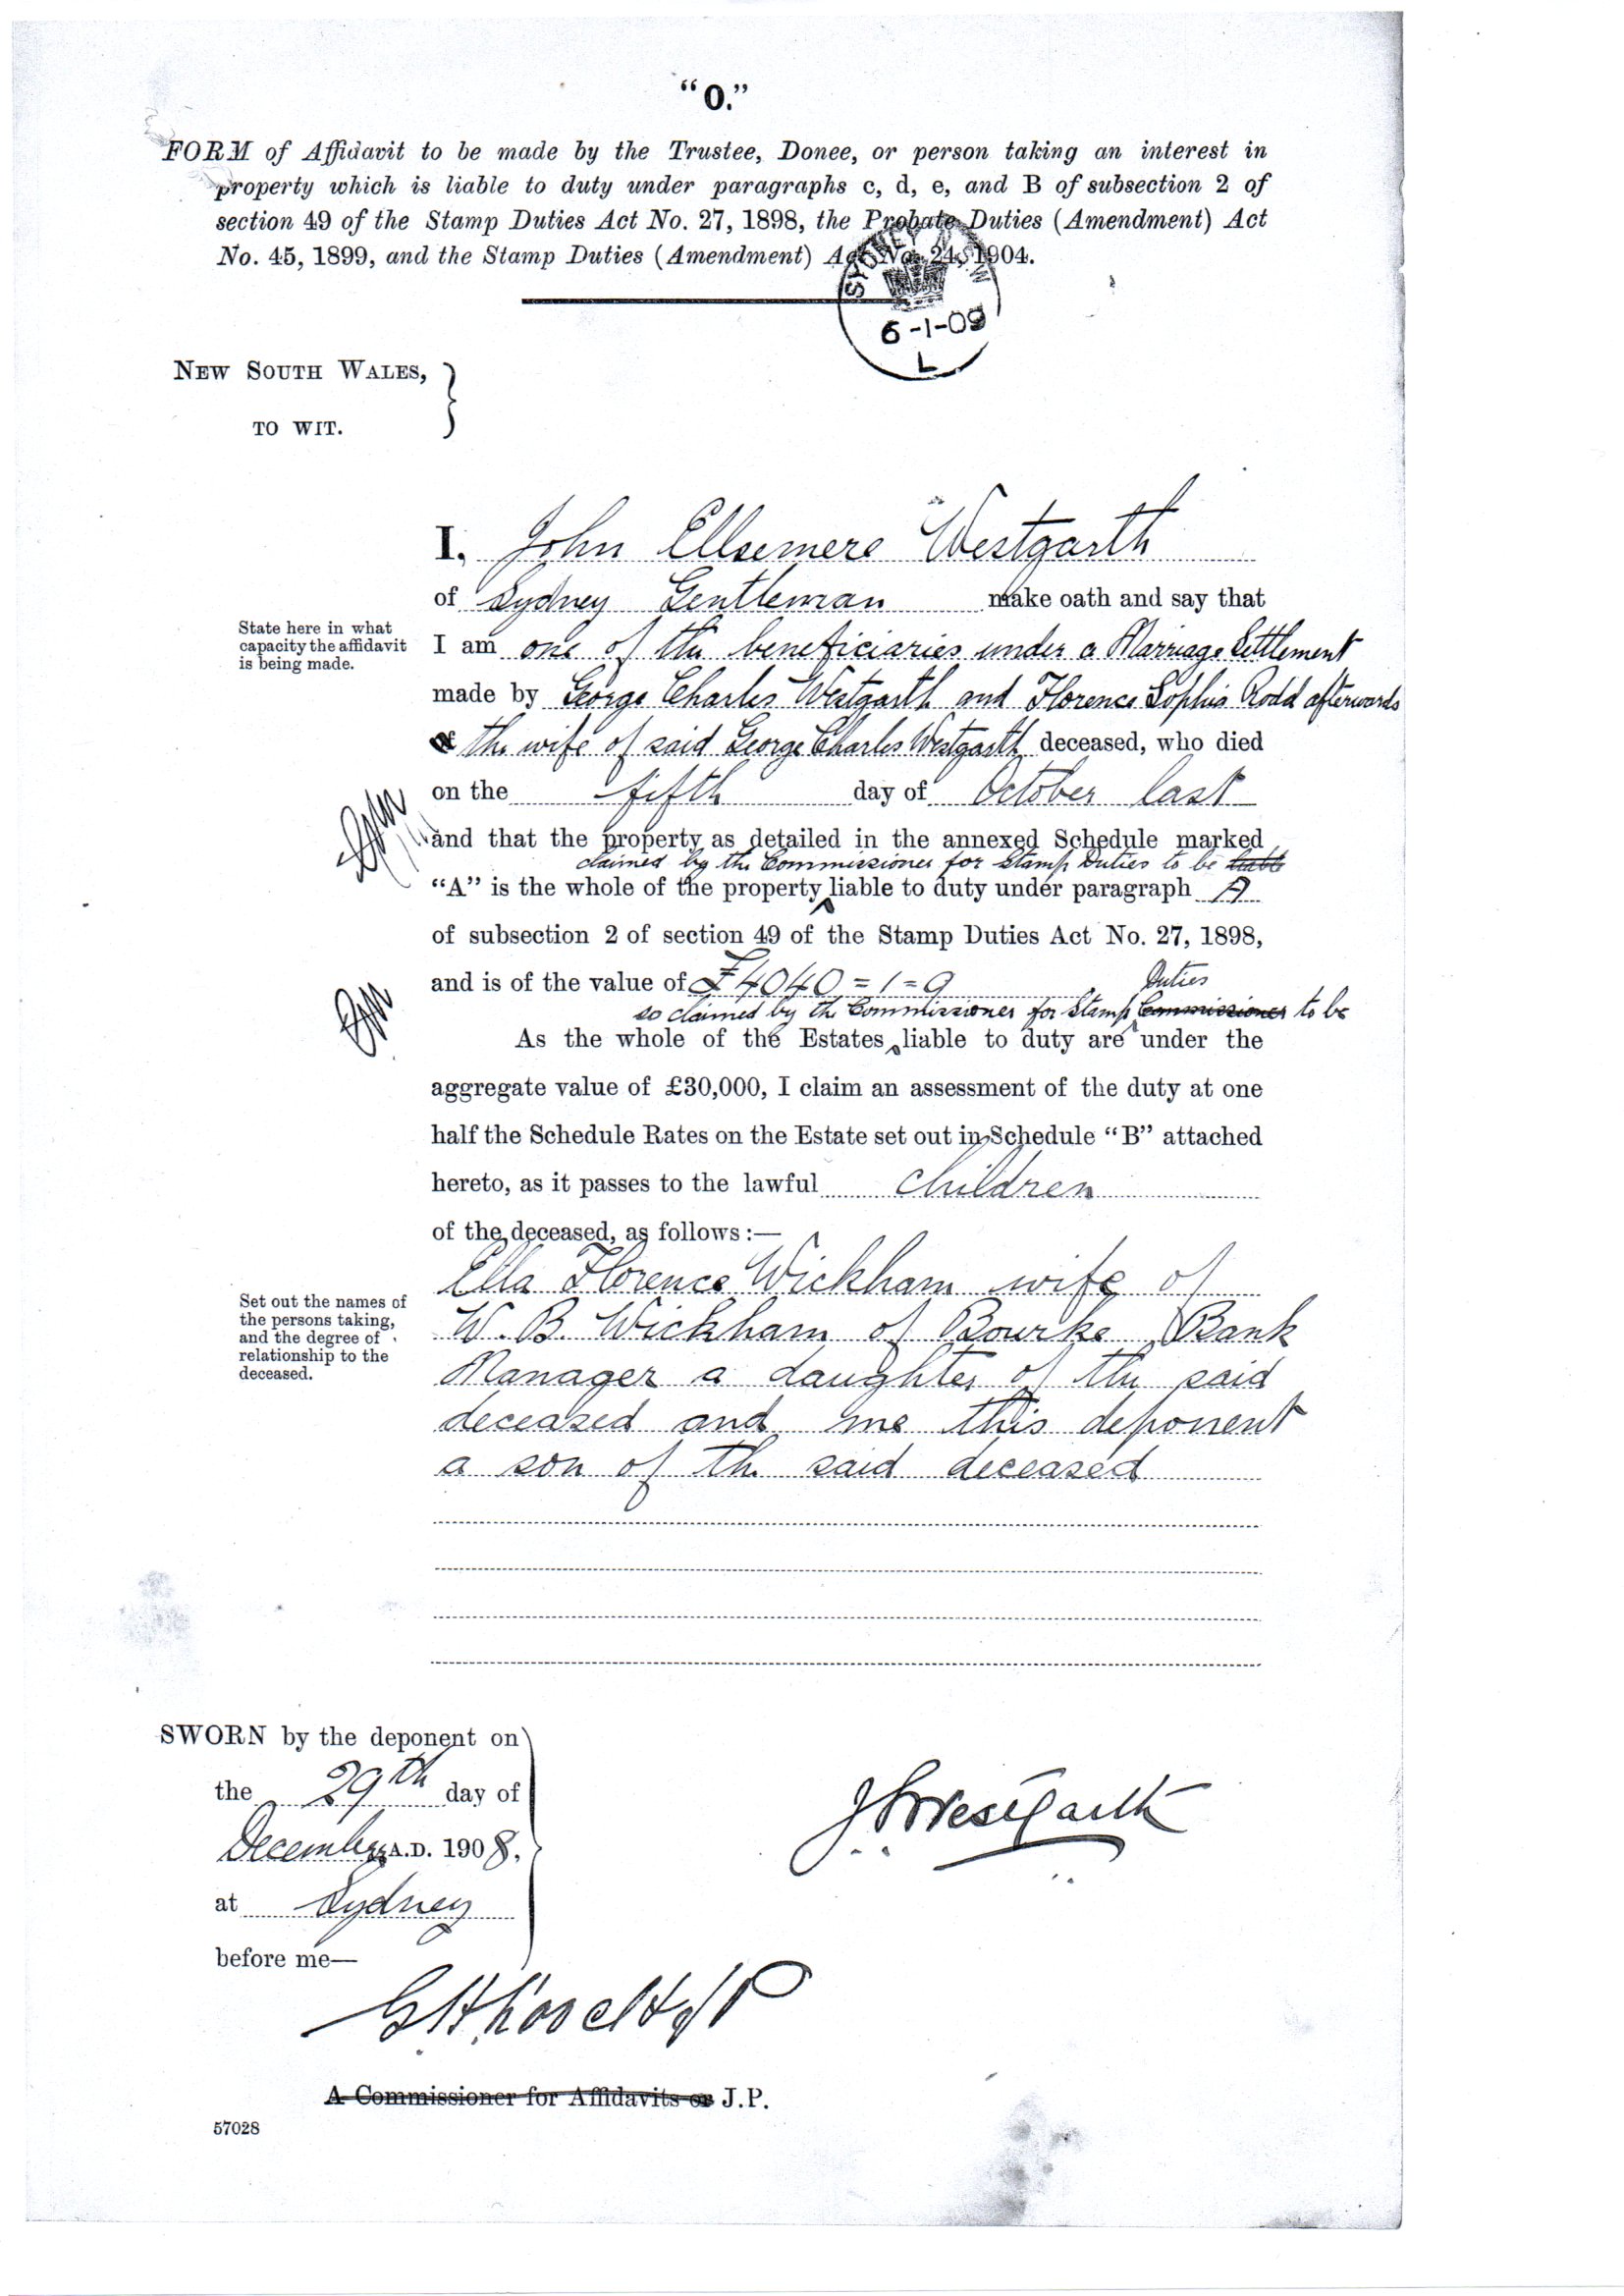 “O.”
FORM of Affidavit to be made by the Trustee, Donee, or person taking an interest in
property which is liable to duty under paragraphs c, d, e, and B of subsection 2 of
section 49 of the Stamp Duties Act No. 27, 1898, the Probate Duties (Amendment) Act
No. 45, 1899, and the Stamp Duties (Amendment) Act No. 24, 1904.
SYDNEY N.S.W
6-1-09
L
NEW SOUTH WALES,
TO WIT.
I, John Ellsemere Westgarth
of Sydney Gentleman make oath and say that
State here in what
capacity the affidavit
is being made.
I am one of the beneficiaries under a Marriage Settlement
made by George Charles Westgarth and Florence Sophia Rodd afterwards
the wife of said George Charles Westgarth deceased, who died
on the fifth day of October last
and that the property as detailed in the annexed Schedule marked
claimed by the Commissioner for Stamp Duties to be liable
“A” is the whole of the property liable to duty under paragraph A
of subsection 2 of section 49 of the Stamp Duties Act No. 27, 1898,
and is of the value of £4040=1=9
Duties
so claimed by the Commissioner for Stamp Commissioner to be
As the whole of the Estates liable to duty are under the
aggregate value of £30,000, I claim an assessment of the duty at one
half the Schedule Rates on the Estate set out in Schedule “B” attached
hereto, as it passes to the lawful children
of the deceased, as follows:—
Set out the names of
the persons taking,
and the degree of
relationship to the
deceased.
Ella Florence Wickham wife of
W. B. Wickham of Bourke Bank
Manager a daughter of the said
deceased and me this deponent
a son of the said deceased
SWORN by the deponent on
the 29th day of
December A.D. 1908,
at Sydney
before me—
J E Westgarth
JP
A Commissioner for Affidavits or J.P.
57028